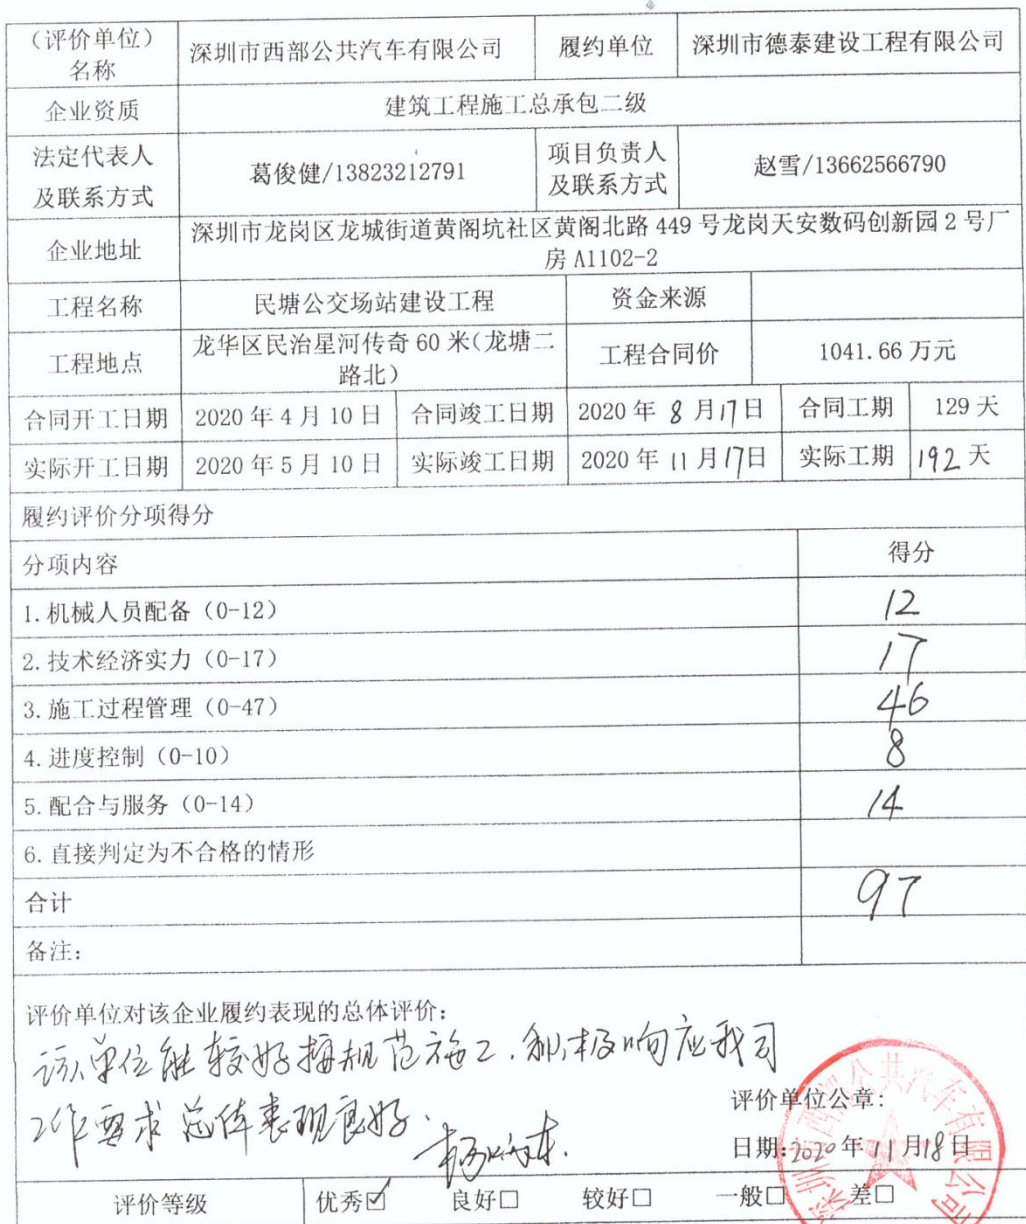 （评价单位）名称 深圳市西部公共汽车有限公司 履约单位 深圳市德泰建设工程有限公司
企业资质 建筑工程施工总承包二级
法定代表人及联系方式 葛俊健/13823212791 项目负责人及联系方式 赵雪/13662566790
企业地址 深圳市龙岗区龙城街道黄阁坑社区黄阁北路 449 号龙岗天安数码创新园 2 号厂房 A1102-2
工程名称 民塘公交场站建设工程 资金来源
工程地点 龙华区民治星河传奇 60 米（龙塘二路北） 工程合同价 1041.66 万元
合同开工日期 2020 年 4 月 10 日 合同竣工日期 2020 年 8 月 17 日 合同工期 129 天
实际开工日期 2020 年 5 月 10 日 实际竣工日期 2020 年 11 月 17 日 实际工期 192 天
履约评价分项得分
分项内容 得分
1.机械人员配备（0-12） 12
2.技术经济实力（0-17） 17
3.施工过程管理（0-47） 46
4.进度控制（0-10） 8
5.配合与服务（0-14） 14
6.直接判定为不合格的情形
合计 97
备注：
评价单位对该企业履约表现的总体评价：
该单位能较好按规范施工.积极响应我司
工作要求总体表现良好.
评价单位公章：
日期：2020 年 11 月 18 日
评价等级 优秀☑ 良好□ 较好□ 一般□ 差□